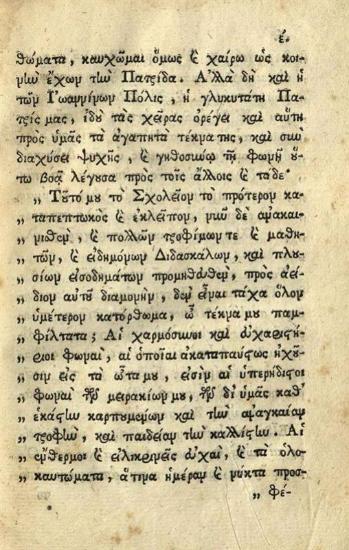 έ.
θώματα, καυχῶμαι ὅμως ϗ χαίρω ὡς κοι-
νὴν ἔχων τὴν Πατρίδα. Ἀλλὰ δὴ καὶ ἡ
τῶν Ἰωαννίνων Πόλις, ἡ γλυκυτάτη Πα-
τρίς μας, ἰδοὺ τὰς χεῖρας ὀρέγει καὶ αὐτὴ
πρὸς ὑμᾶς τὰ ἀγαπητὰ τέκνα της, καὶ σὺν
διαχύσει ψυχῆς, ϗ γηθοσύνῳ τῇ φωνῇ οὕ-
τω βοᾷ λέγουσα πρὸς τοῖς ἄλλοις ϗ τάδε·
„ Τοῦτό μου τὸ Σχολεῖον τὸ πρότερον κα-
„ ταπεπτωκὸς ϗ ἐκλεῖπον, νῦν δὲ ἀνακαι-
„ νισθὲν, ϗ πολλῶν τροφίμων τε ϗ μαθη-
„ τῶν, ϗ εἰδημόνων Διδασκάλων, καὶ πλου-
„ σίων εἰσοδημάτων προμηθευθὲν, πρὸς ἀεί-
„ διον αὐτοῦ διαμονὴν, δὲν εἶναι τάχα ὅλον
„ ὑμέτερον κατόρθωμα, ὦ τέκνα μου παμ-
„ φίλτατα; Αἱ χαρμόσυνοι καὶ εὐχαριστή-
„ ριοι φωναὶ, αἱ ὁποῖαι ἀκαταπαύστως ἠχοῦ-
„ σιν εἰς τὰ ὦτα μου, εἰσὶν αἱ ὑπερήδιστοι
„ φωναὶ τῶν μειρακίων μου, τῶν δι' ὑμᾶς καθ'
„ ἑκάστην καρπουμένων καὶ τὴν ἀναγκαίαν
„ τροφὴν, καὶ παιδείαν τὴν καλλίστην. Αἱ
„ ἔνθερμοι ϗ εἰλικρινεῖς εὐχαὶ, ϗ τὰ ὁλο-
„ καυτώματα, ἅτινα ἡμέραν ϗ νύκτα προσ-
„ φέ-